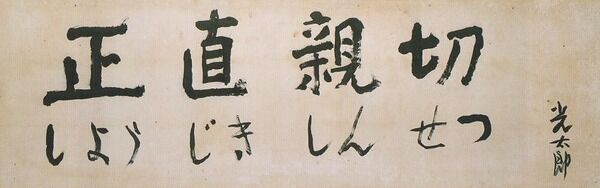 正直親切
しょうじきしんせつ
光太郎